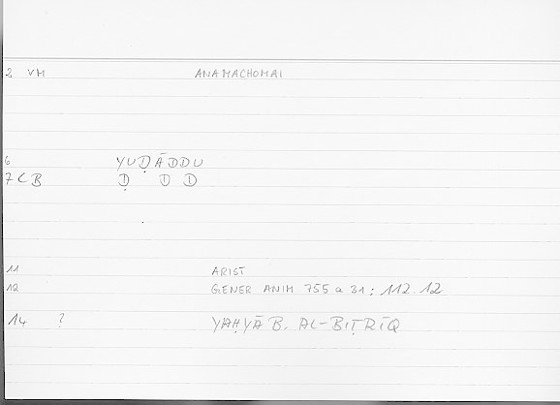 2 VM ANAMACHOMAI
6 YUḌĀDDU
7 LB Ḍ D D
11 ARIST
12 GENER ANIM 755 a 31 : 112.12
14 ? YAḤYĀ B. AL-BIṬRĪQ